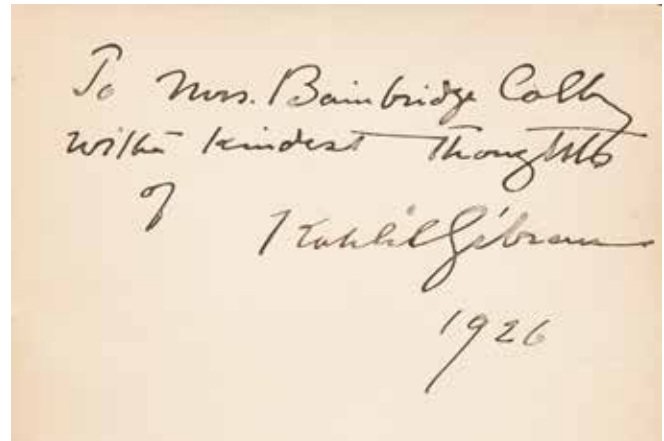 To Mrs. Bainbridge Colby
with kindest thoughts
of
Kahlil Gibran
1926